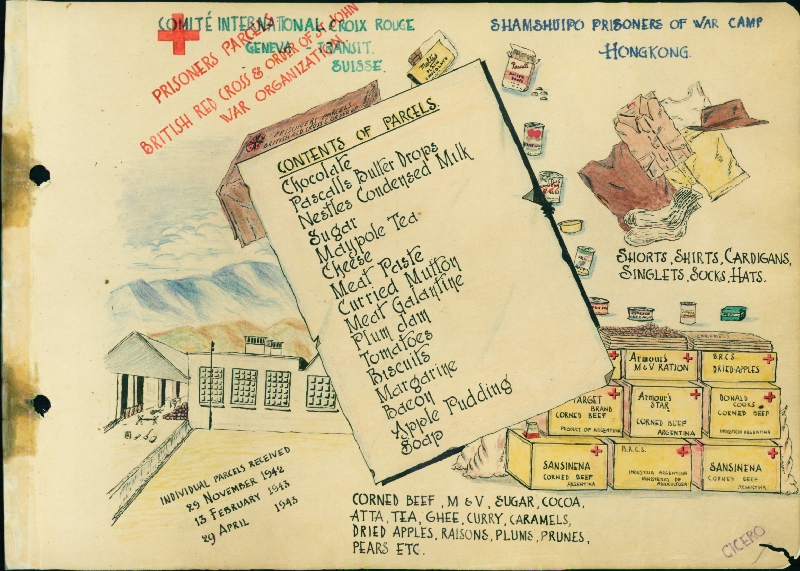 COMITÉ INTERNATIONAL CROIX ROUGE
GENEVA TRANSIT.
SUISSE.
PRISONERS PARCELS
BRITISH RED CROSS & ORDER OF St JOHN
WAR ORGANIZATION.
SHAMSHUIPO PRISONERS OF WAR CAMP
HONGKONG.
PRISONERS PARCELS
CONTENTS OF PARCELS.
Chocolate
Pascalls Butter Drops
Nestles Condensed Milk
Sugar
Maypole Tea
Cheese
Meat Paste
Curried Mutton
Meat Galantine
Plum Jam
Tomatoes
Biscuits
Margarine
Bacon
Apple Pudding
Soap
SHORTS, SHIRTS, CARDIGANS,
SINGLETS, SOCKS, HATS.
Armour's
M&V RATION
B.R.C.S.
DRIED APPLES
TARGET
BRAND
CORNED BEEF
PRODUCT OF ARGENTINA
Armour's
STAR
CORNED BEEF
ARGENTINA
DONALD
COOKS
CORNED BEEF
INDUSTRIA ARGENTINA
SANSINENA
CORNED BEEF
ARGENTINA
B.R.C.S.
INDUSTRIA ARGENTINA
SANSINENA
CORNED BEEF
ARGENTINA
INDIVIDUAL PARCELS RECEIVED
29 NOVEMBER 1942
13 FEBRUARY 1943
29 APRIL 1943
CORNED BEEF, M & V, SUGAR, COCOA,
ATTA, TEA, GHEE, CURRY, CARAMELS,
DRIED APPLES, RAISONS, PLUMS, PRUNES,
PEARS ETC.
CICERO